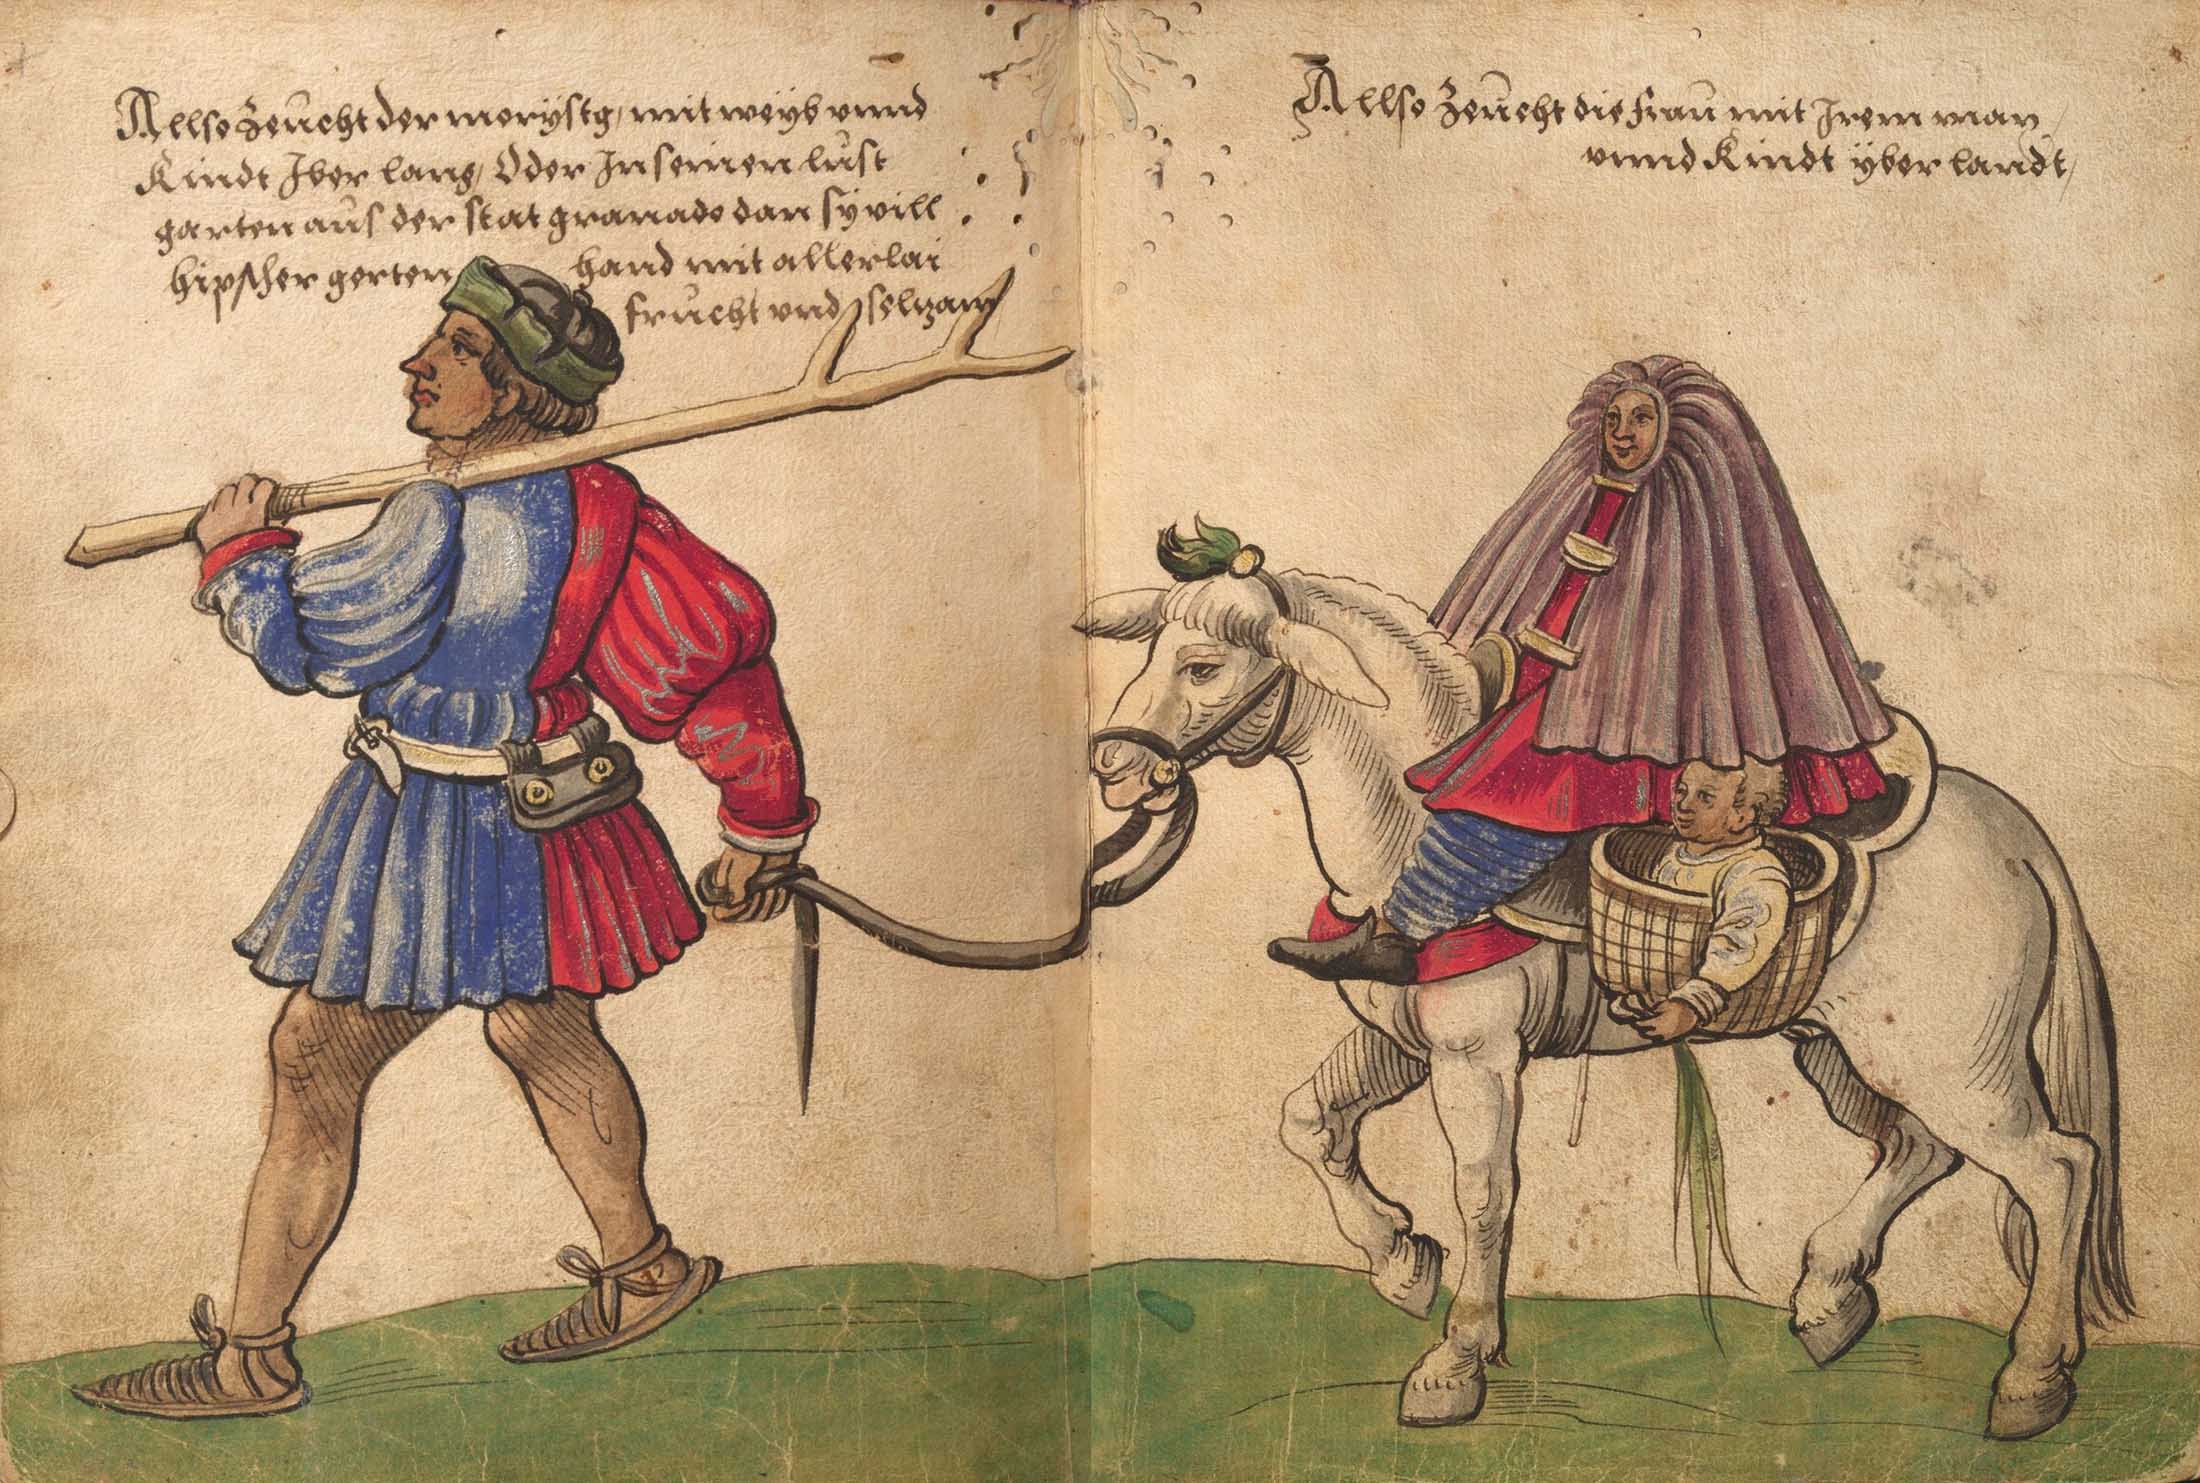 Allso Zeücht der morÿstg, mit weÿb vnnd
Kindt Iber lang, Oder In seinen lüst
garten aüs der stat granado dan sÿ vill
hipscher gerten hand mit allerlai
frücht vnd selzam
Allso Zeücht die fraü mit Irem man,
vnnd Kindt ÿber landt,